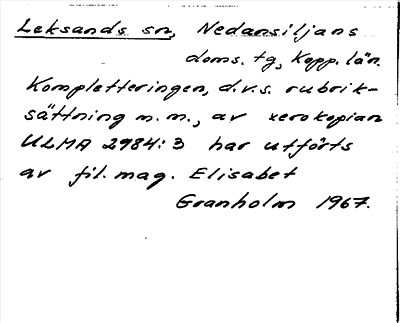 Leksands sn, Nedansiljans
doms. tg, Kopp. län.
Kompletteringen, d.v.s. rubrik-
sättning m.m., av xerokopian
ULMA 2984:3 har utförts
av fil. mag. Elisabet
Granholm 1967.